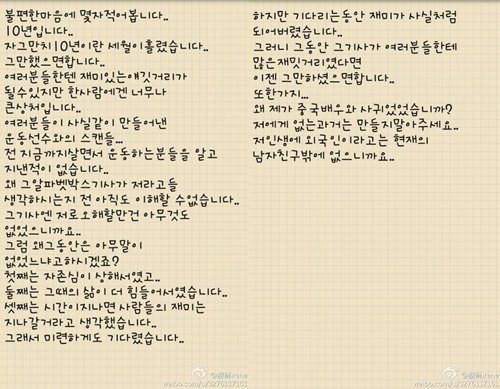 불편한마음에 몇자적어봅니다..
10년입니다..
자그만치10년이란 세월이흘렸습니다..
그만했으면합니다..
여러분들한텐 재미있는얘깃거리가
될수있지만 한사람에겐 너무나
큰상처입니다..
여러분들이 사실같이 만들어낸
운동선수와의 스캔들..
전 지금까지살면서 운동하는분들을 알고
지낸적이 없습니다..
왜 그알파벳박스기사가 저라고들
생각하시는지 전 아직도 이해할 수없습니다..
그기사엔 저로오해할만건 아무것도
없었으니까요..
그럼 왜그동안은 아무말이
없었느냐고하시겠죠?
첫째는 자존심이 상해서였고..
둘째는 그때의 삶이 더 힘들어서였습니다..
셋째는 시간이지나면 사람들의 재미는
지나갈거라고 생각했습니다..
그래서 미련하게도 기다렸습니다..
하지만 기다리는동안 재미가 사실처럼
되어버렸습니다..
그러니 그동안 그기사가 여러분들한테
많은재밋거리였다면
이젠 그만하셨으면합니다..
또한가지...
왜 제가 중국배우와 사귀었었습니까?
저에게 없는과거는 만들지말아주세요..
저인생에 외국인이라고는 현재의
남자친구밖에 없으니까요..
weibo.com/u/3276337163
weibo.com/u/3276337163